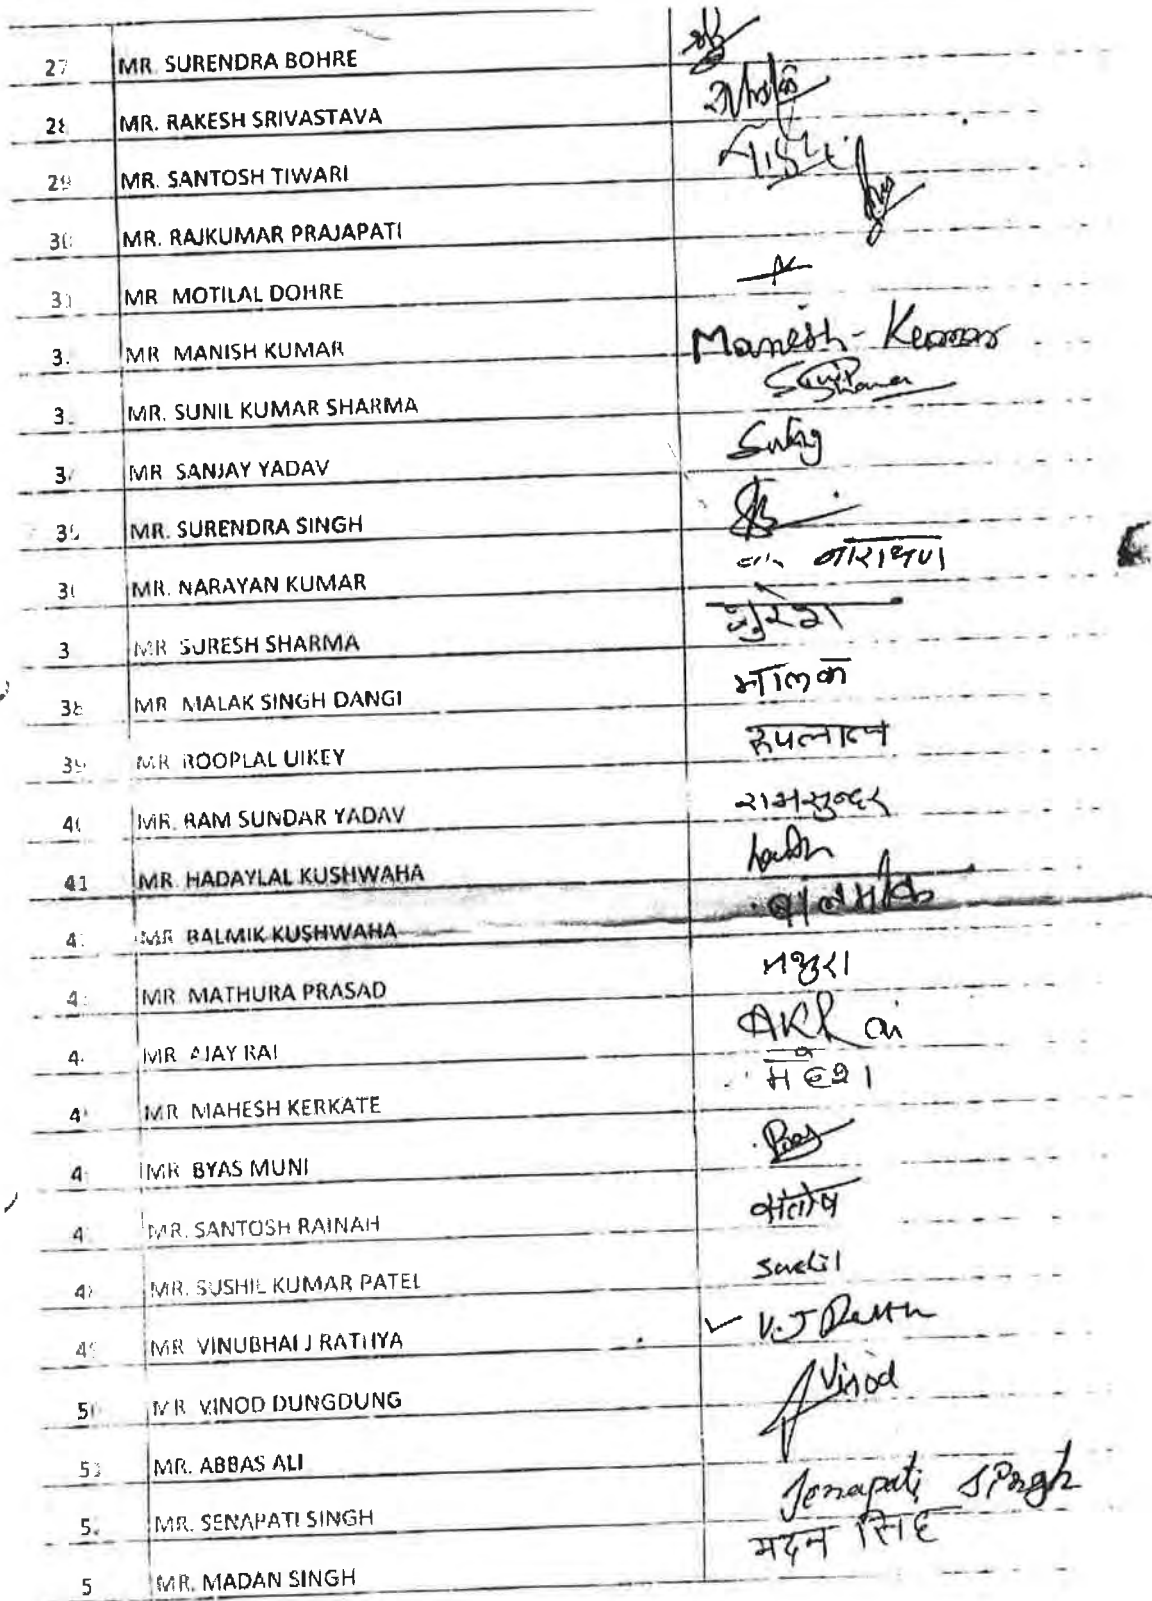 27 MR. SURENDRA BOHRE
28 MR. RAKESH SRIVASTAVA
29 MR. SANTOSH TIWARI
30 MR. RAJKUMAR PRAJAPATI
3 MR MOTILAL DOHRE
3. MR MANISH KUMAR Manesh - Kumar
3. MR. SUNIL KUMAR SHARMA
3 MR SANJAY YADAV
35 MR. SURENDRA SINGH
3 MR. NARAYAN KUMAR नारायण
3 MR SURESH SHARMA शुरेश
38 MR MALAK SINGH DANGI मालक
39 MR ROOPLAL UIKEY रूपलाल
40 MR. RAM SUNDAR YADAV रामसुन्दर
41 MR. HADAYLAL KUSHWAHA
4 MR BALMIK KUSHWAHA
4 MR. MATHURA PRASAD मथुरा
4 MR AJAY RAI AKRai
4 MR MAHESH KERKATE महेश
4 MR BYAS MUNI
4 MR. SANTOSH RAINAH संतोष
4 MR. SUSHIL KUMAR PATEL
49 MR VINUBHAI J RATHYA
50 MR VINOD DUNGDUNG Vinod
5 MR. ABBAS ALI
5. MR. SENAPATI SINGH Senapati Singh
5 MR. MADAN SINGH मदन सिंह